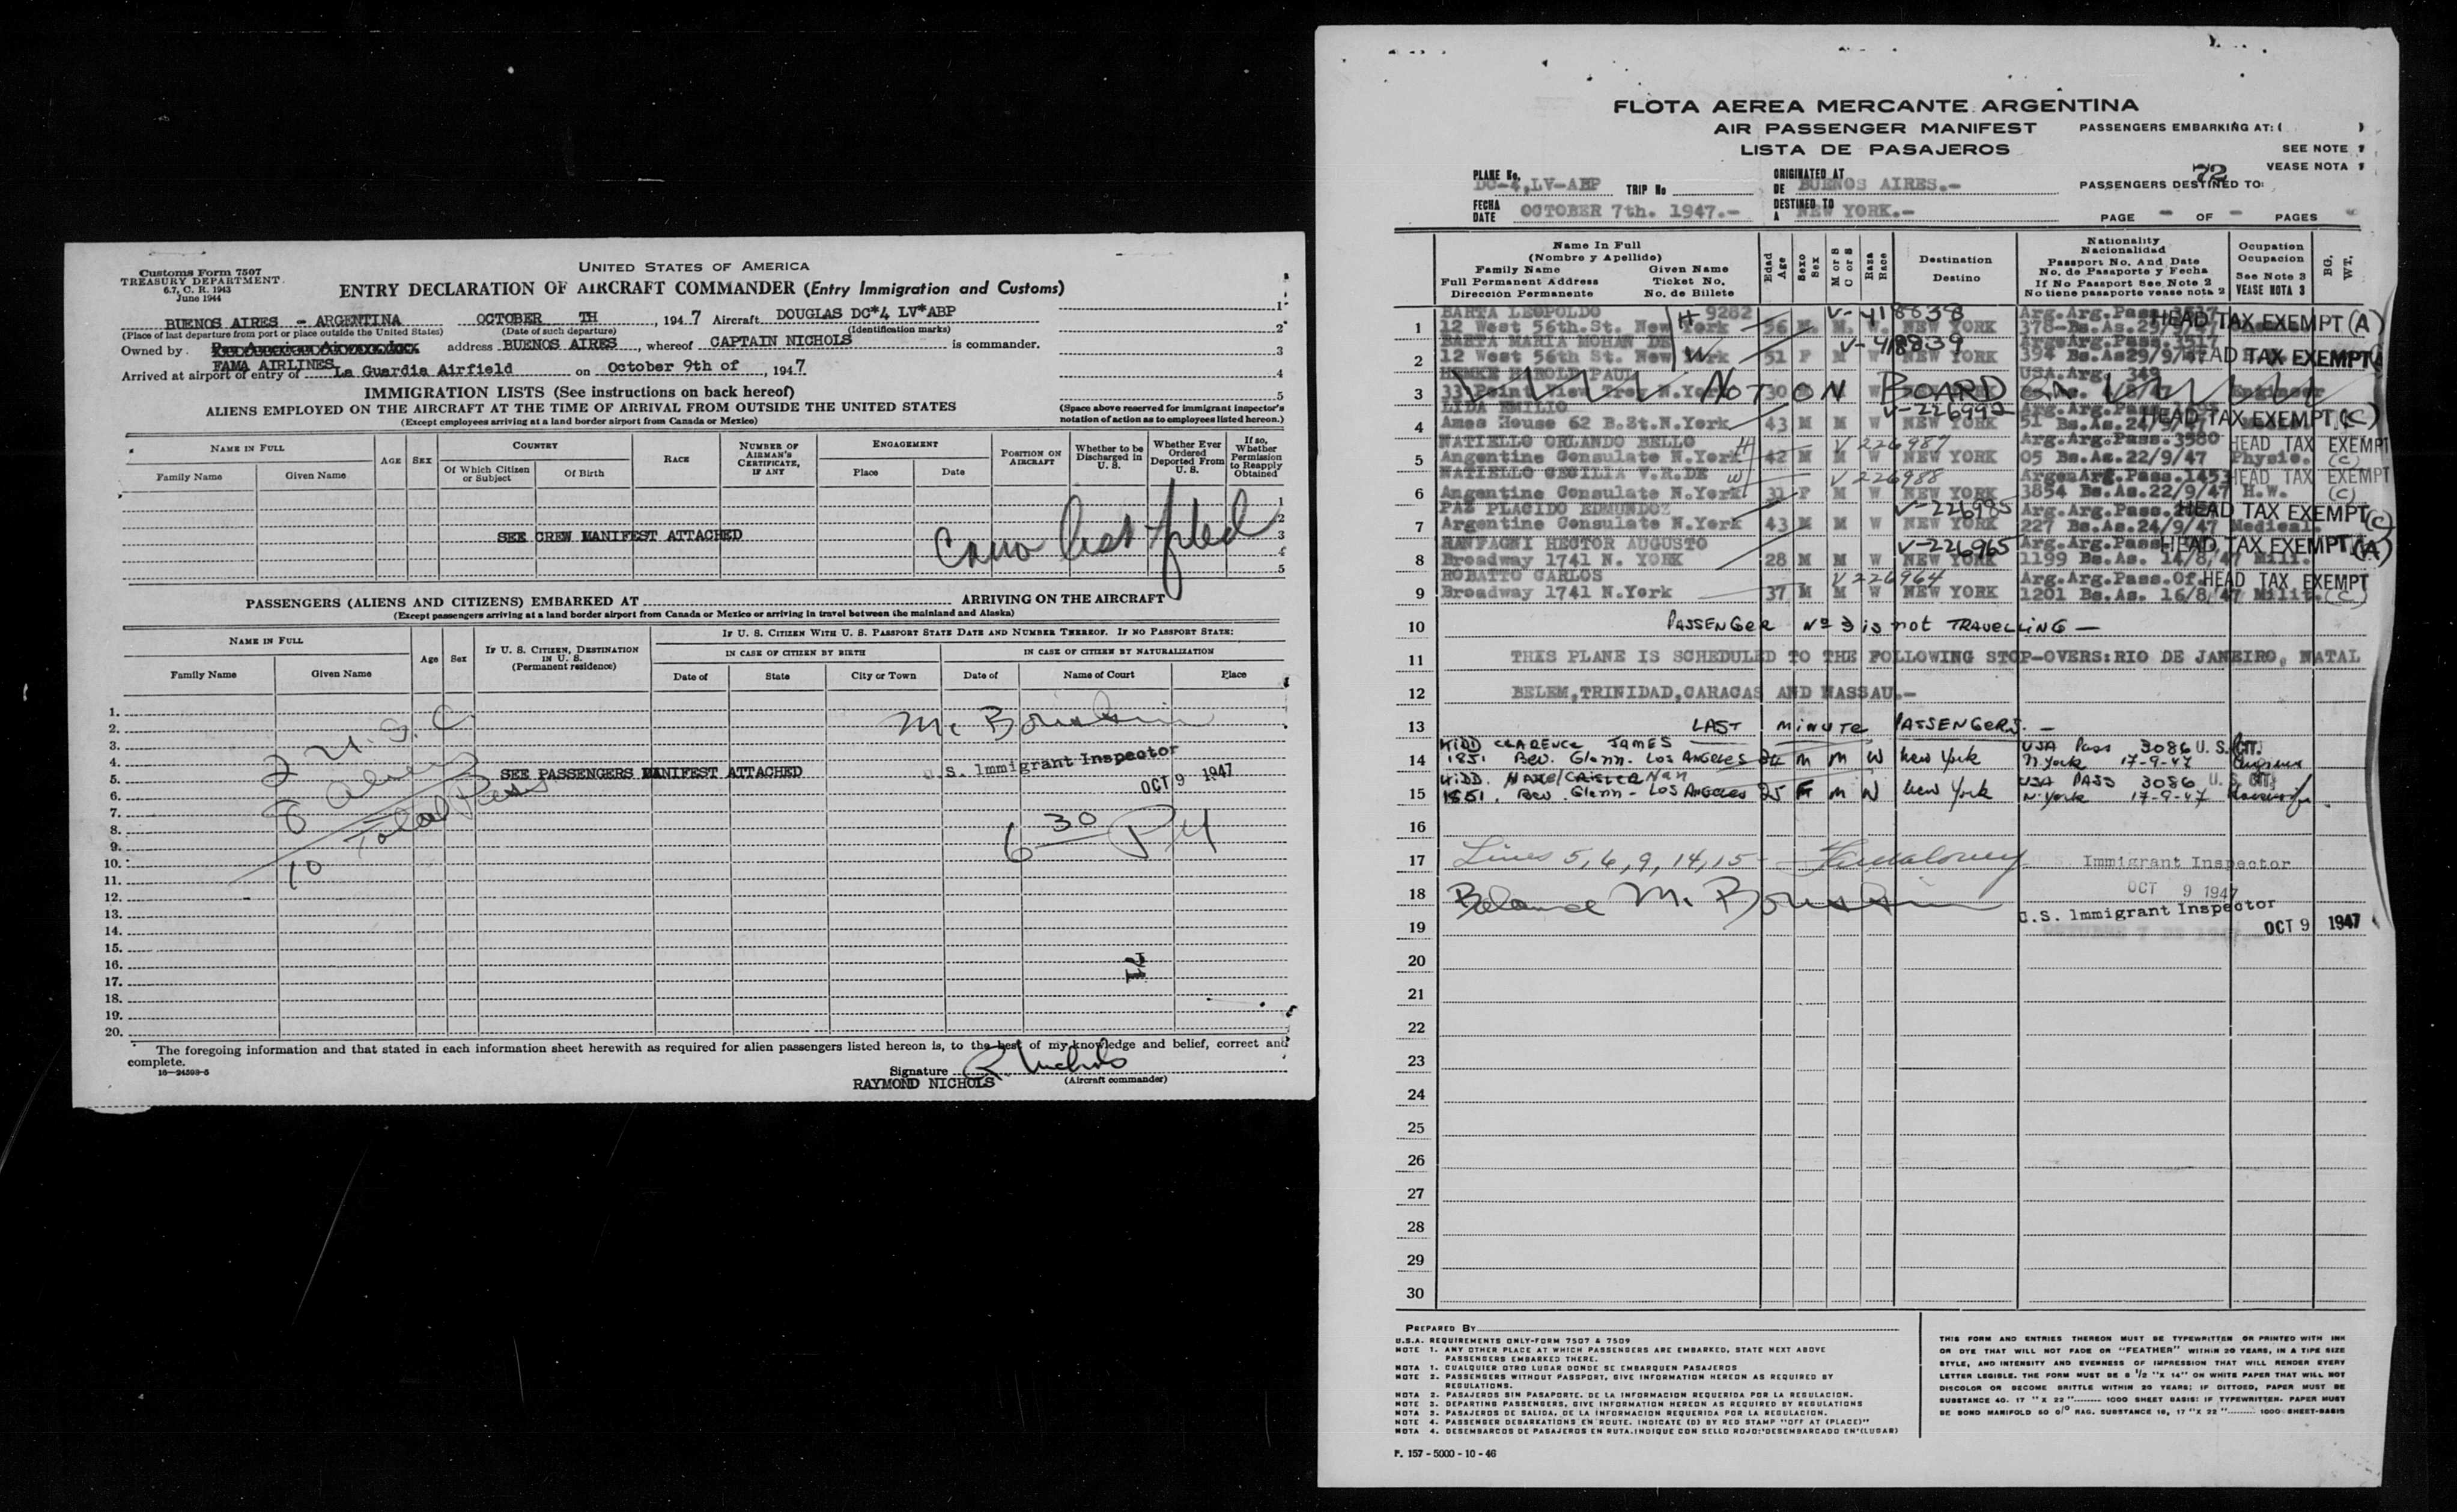 Customs Form 7507
TREASURY DEPARTMENT
6.7, C. R. 1943
June 1944
UNITED STATES OF AMERICA
ENTRY DECLARATION OF AIRCRAFT COMMANDER (Entry Immigration and Customs)
BUENOS AIRES - ARGENTINA OCTOBER TH , 1947 Aircraft DOUGLAS DC*4 LV*ABP
(Place of last departure from port or place outside the United States) (Date of such departure) (Identification marks)
Owned by address BUENOS AIRES , whereof CAPTAIN NICHOLS is commander.
FAMA AIRLINES
Arrived at airport of entry of La Guardia Airfield on October 9th of , 1947
1
2
3
4
5
IMMIGRATION LISTS (See instructions on back hereof)
ALIENS EMPLOYED ON THE AIRCRAFT AT THE TIME OF ARRIVAL FROM OUTSIDE THE UNITED STATES
(Except employees arriving at a land border airport from Canada or Mexico)
(Space above reserved for immigrant inspector's notation of action as to employees listed hereon.)
NAME IN FULL
Family Name Given Name
AGE SEX
COUNTRY
Of Which Citizen or Subject Of Birth
RACE
NUMBER OF AIRMAN'S CERTIFICATE, IF ANY
ENGAGEMENT
Place Date
POSITION ON AIRCRAFT
Whether to be Discharged in U. S.
Whether Ever Ordered Deported From U. S.
If so, Whether Permission to Reapply Obtained
1
2
SEE CREW MANIFEST ATTACHED 3
4
5
list filed
PASSENGERS (ALIENS AND CITIZENS) EMBARKED AT ARRIVING ON THE AIRCRAFT
(Except passengers arriving at a land border airport from Canada or Mexico or arriving in travel between the mainland and Alaska)
NAME IN FULL
Family Name Given Name
Age Sex
IF U. S. CITIZEN, DESTINATION IN U. S. (Permanent residence)
IF U. S. CITIZEN WITH U. S. PASSPORT STATE DATE AND NUMBER THEREOF. IF NO PASSPORT STATE:
IN CASE OF CITIZEN BY BIRTH IN CASE OF CITIZEN BY NATURALIZATION
Date of State City or Town Date of Name of Court Place
1.
2.
3.
4.
5. SEE PASSENGERS MANIFEST ATTACHED
6.
7.
8.
9.
10.
11.
12.
13.
14.
15.
16.
17.
18.
19.
20.
2 U.S.C.
8 Aliens
10 Total Pass
U.S. Immigrant Inspector
OCT 9 1947
6 30 PM
71
The foregoing information and that stated in each information sheet herewith as required for alien passengers listed hereon is, to the best of my knowledge and belief, correct and
complete.
16-24598-5
Signature R. Nichols
RAYMOND NICHOLS (Aircraft commander)
FLOTA AEREA MERCANTE ARGENTINA
AIR PASSENGER MANIFEST
LISTA DE PASAJEROS
PASSENGERS EMBARKING AT: ( )
SEE NOTE 1
VEASE NOTA 1
72
PASSENGERS DESTINED TO:
PAGE - OF - PAGES
PLANE No. DC-4,LV-ABP TRIP No
ORIGINATED AT
DE BUENOS AIRES.-
FECHA
DATE OCTOBER 7th. 1947.-
DESTINED TO
A NEW YORK.-
Name In Full
(Nombre y Apellido)
Family Name Given Name
Full Permanent Address Ticket No.
Dirección Permanente No. de Billete
Edad Age
Sexo Sex
M or S
C or S
Raza Race
Destination
Destino
Nationality
Nacionalidad
Passport No. And Date
No. de Pasaporte y Fecha
If No Passport See Note 2
No tiene pasaporte vease nota 2
Ocupation
Ocupacion
See Note 3
VEASE NOTA 3
BG. WT.
BARTA LEOPOLDO H 9282 V-418838 Arg.Arg.Pass.
1 12 West 56th.St. New York 56 M M. W. NEW YORK 378-Bs.As.29/9/47 HEAD TAX EXEMPT (A)
BARTA MARIA MOHAN DE W V-418839 Arg.Arg.Pass.3517
2 12 West 56th St. New York 51 F M W NEW YORK 394 Bs.As29/9/47 HEAD TAX EXEMPT
HAROLD PAUL USA.Arg. 349
3 33 Point View N.York 30 NOT ON BOARD
LIDA EMILIO V-226992 Arg.Arg.Pass.
4 Ames House 62 B.St.N.York 43 M M W NEW YORK 51 Bs.As.24/9/47 HEAD TAX EXEMPT (C)
NATIELLO ORLANDO BELLO H V 226987 Arg.Arg.Pass.3580 HEAD TAX EXEMPT
5 Argentine Consulate N.York 42 M M W NEW YORK 05 Bs.As.22/9/47 Physic. (C)
NATIELLO CECILIA V.R.DE W V 226988 Argen Arg.Pass.1453 HEAD TAX EXEMPT
6 Argentine Consulate N.York 31 F M W NEW YORK 3854 Bs.As.22/9/47 H.W. (C)
PAZ PLACIDO EDMUNDO V-226985 Arg.Arg.Pass. HEAD TAX EXEMPT (C)
7 Argentine Consulate N.York 43 M M W NEW YORK 227 Bs.As.24/9/47 Medical.
RANFAGNI HECTOR AUGUSTO V-226965 Arg.Arg.Pass. HEAD TAX EXEMPT (A)
8 Broadway 1741 N. YORK 28 M M W NEW YORK 1199 Bs.As. 14/8/47 Mili.
ROBATTO CARLOS V 226964 Arg.Arg.Pass.Of. HEAD TAX EXEMPT
9 Broadway 1741 N.York 37 M M W NEW YORK 1201 Bs.As. 16/8/47 Milit. (C)
10 PASSENGER Nº 3 is not TRAVELLING -
11 THIS PLANE IS SCHEDULED TO THE FOLLOWING STOP-OVERS:RIO DE JANEIRO, NATAL
12 BELEM,TRINIDAD,CARACAS AND NASSAU.-
13 LAST minute PASSENGERS. -
KIDD CLARENCE JAMES USA Pass 3086 U. S. CIT.
14 1851 Bev. Glenn. Los ANGELES M M W New York N.York 17-9-47
KIDD. USA PASS 3086 U. S. CIT.
15 1851. Bev. Glenn - Los ANGELES 25 F M W New York N.York 17-9-47
16
17 Lines 5, 6, 9, 14, 15 - Immigrant Inspector
OCT 9 1947
18 Balance
U.S. Immigrant Inspector
19 OCT 9 1947
20
21
22
23
24
25
26
27
28
29
30
PREPARED BY
U.S.A. REQUIREMENTS ONLY-FORM 7507 & 7509
NOTE 1. ANY OTHER PLACE AT WHICH PASSENGERS ARE EMBARKED, STATE NEXT ABOVE
PASSENGERS EMBARKED THERE.
NOTA 1. CUALQUIER OTRO LUGAR DONDE SE EMBARQUEN PASAJEROS
NOTE 2. PASSENGERS WITHOUT PASSPORT, GIVE INFORMATION HEREON AS REQUIRED BY
REGULATIONS.
NOTA 2. PASAJEROS SIN PASAPORTE. DE LA INFORMACION REQUERIDA POR LA REGULACION.
NOTE 3. DEPARTING PASSENGERS, GIVE INFORMATION HEREON AS REQUIRED BY REGULATIONS
NOTA 3. PASAJEROS DE SALIDA, DE LA INFORMACION REQUERIDA POR LA REGULACION.
NOTE 4. PASSENGER DEBARKATIONS EN ROUTE. INDICATE (D) BY RED STAMP "OFF AT (PLACE)"
NOTA 4. DESEMBARCOS DE PASAJEROS EN RUTA.INDIQUE CON SELLO ROJO:'DESEMBARCADO EN'(LUGAR)
THIS FORM AND ENTRIES THEREON MUST BE TYPEWRITTEN OR PRINTED WITH INK
OR DYE THAT WILL NOT FADE OR "FEATHER" WITHIN 20 YEARS, IN A TYPE SIZE
STYLE, AND INTENSITY AND EVENNESS OF IMPRESSION THAT WILL RENDER EVERY
LETTER LEGIBLE. THE FORM MUST BE 8 1/2 "X 14" ON WHITE PAPER THAT WILL NOT
DISCOLOR OR BECOME BRITTLE WITHIN 20 YEARS; IF DITTOED, PAPER MUST BE
SUBSTANCE 40. 17 "X 22 "........ 1000 SHEET BASIS: IF TYPEWRITTEN. PAPER MUST
BE BOND MANIFOLD 50 0/0 RAG. SUBSTANCE 16, 17 "X 22 "........ 1000 SHEET-BASIS
F. 157 - 5000 - 10 - 46